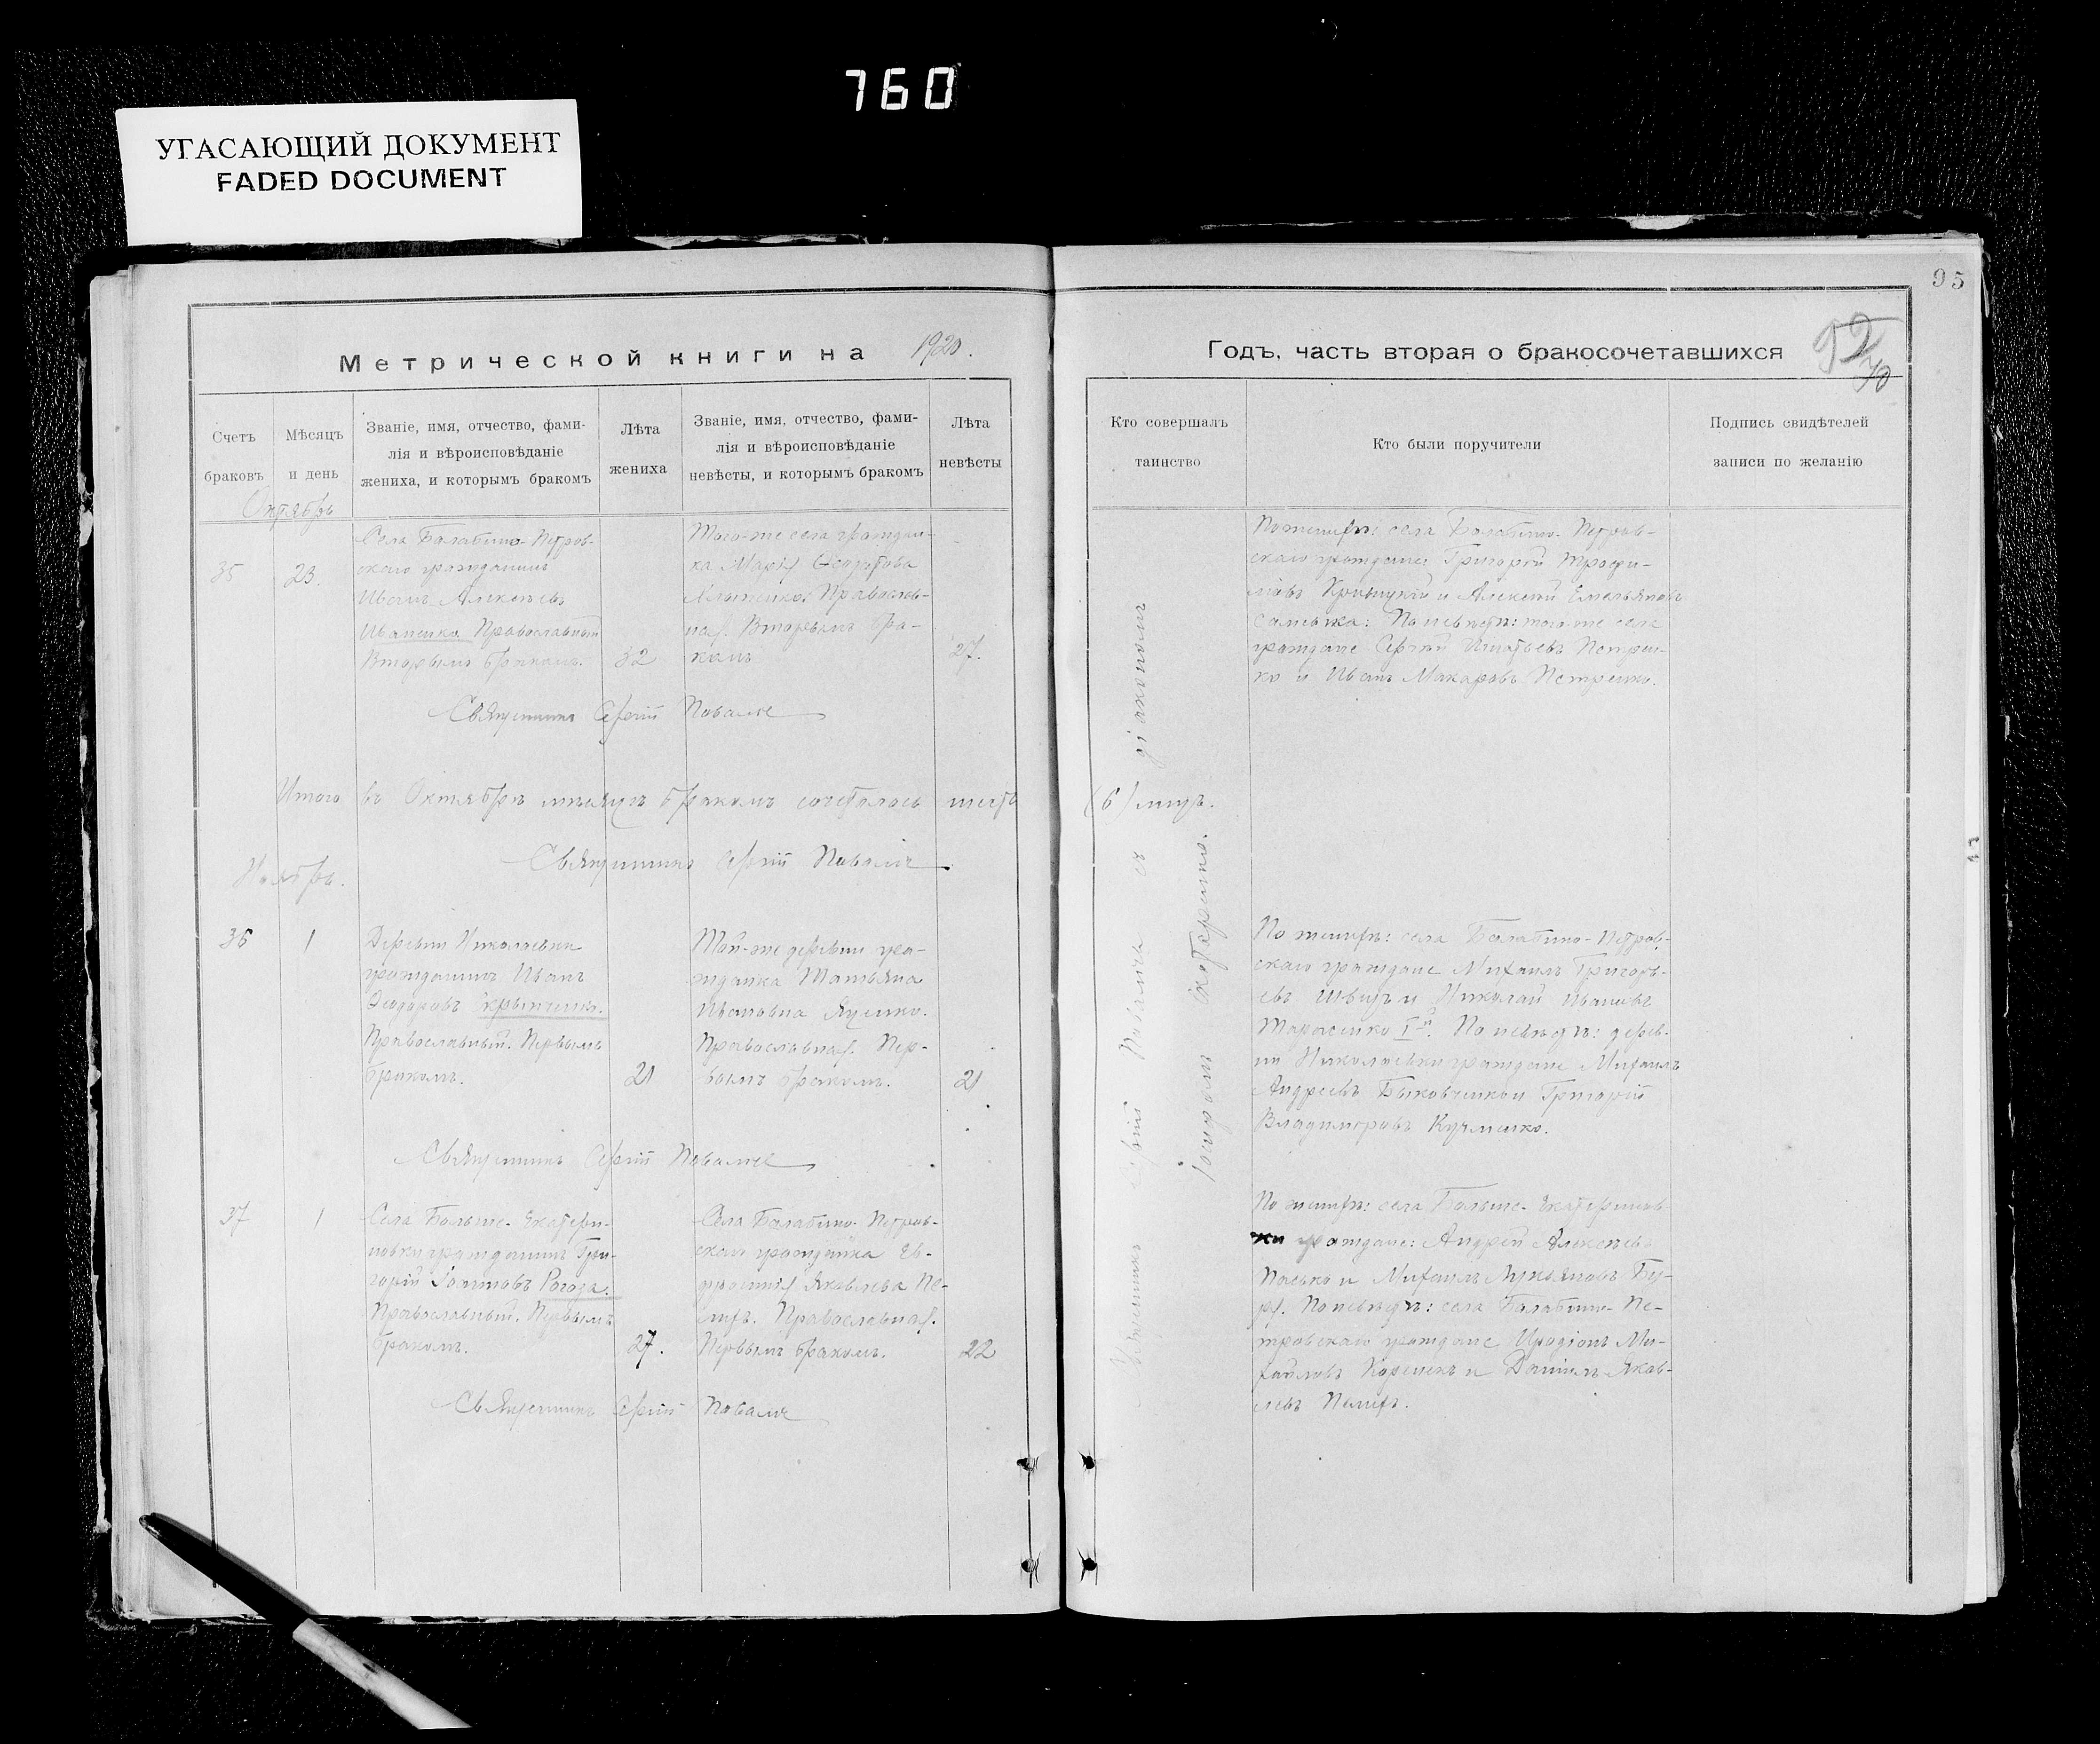 760
УГАСАЮЩИЙ ДОКУМЕНТ
FADED DOCUMENT
95
Метрической книги на 1920.
Годъ, часть вторая о бракосочетавшихся
Счетъ
браковъ
Мѣсяцъ
и день
Званіе, имя, отчество, фами-
лія и вѣроисповѣданіе
жениха, и которымъ бракомъ
Лѣта
жениха
Званіе, имя, отчество, фами-
лія и вѣроисповѣданіе
невѣсты, и которымъ бракомъ
Лѣта
невѣсты
Кто совершалъ
таинство
Кто были поручители
Подпись свидѣтелей
записи по желанію
Октябрь
35
23.
Села Балабино-Петров-
скаго гражданинъ
Иванъ Алексѣевъ
Иваненко. Православный
Вторымъ бракомъ.
32
Того-же села граждан-
ка Марія
Православ-
ная. Вторымъ бра-
комъ
27.
По женихѣ: села Балабино-Петров-
скаго граждане: Григорій Трофи-
мовъ Кривицкій и Алексѣй Емельяновъ
По невѣстѣ: того-же села
граждане Сергѣй Игнатьевъ Петрен-
ко и Иванъ Макаровъ Петренко.
Священникъ Сергій
Итого въ Октябрѣ мѣсяцѣ бракомъ сочеталось шесть (6) лицъ.
Священникъ Сергій
Ноябрь.
36
1
Деревни Николаевки
гражданинъ Иванъ
Ѳеодоровъ
Православный. Первымъ
бракомъ.
21
Той-же деревни гра-
жданка Татьяна
Ивановна Яценко.
Православная. Пер-
вымъ бракомъ.
21
По женихѣ: села Балабино-Петров-
скаго граждане Михаилъ Григорь-
евъ Швецъ и Николай Ивановъ
Тарасенко I-й. По невѣстѣ: дерев-
ни Николаевки граждане Михаилъ
Андреевъ Быковченко и Григорій
Владимировъ Кучменко.
Священникъ Сергій
37
1
Села Больше-Екатери-
новки гражданинъ Гри-
горій Рогоза.
Православный. Первымъ
бракомъ.
27.
Села Балабино-Петров-
скаго гражданка Ев-
фросинія Яковлева
Православная.
Первымъ бракомъ.
22
По женихѣ: села Больше-Екатеринов-
ки граждане: Андрей Алексѣевъ
и Михаилъ Лукьяновъ
По невѣстѣ: села Балабино-Пе-
тровскаго граждане Иродіонъ Ми-
хайловъ и Даніилъ Яков-
левъ
Священникъ Сергій
Священникъ Сергій съ діакономъ